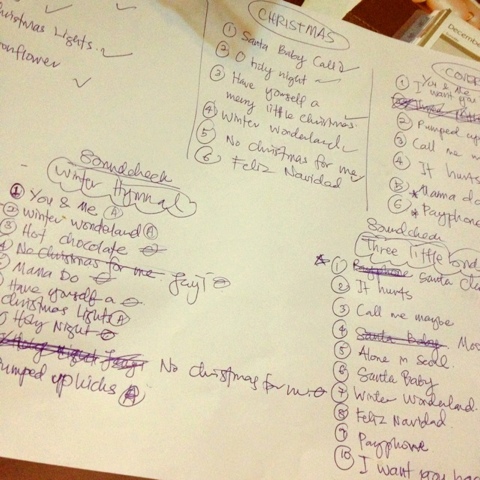 Christmas Lights.
onflower
CHRISTMAS
① Santa Baby
② O holy night
③ Have yourself a
merry little christmas
④ Winter wonderland
⑤ No Christmas for me
⑥ Feliz Navidad
① You & Me
I want you
② Pumped up
③ Call me m
④ It hurts
5 * Mama do
⑥ * Payphone
Soundcheck
Winter Hymnal
① You & Me Ⓐ
② Winter wonderland Ⓐ
③ Hot chocolate
No Christmas for me
Mama Do
Have yourself a
Christmas Lights Ⓐ
O Holy Night
No Christmas for me
Pumped up kicks Ⓐ
Soundcheck
Three little bird
① Santa Cla
② It hurts
③ Call me maybe
④ Santa Baby
⑤ Alone in Seoul.
⑥ Santa Baby
⑦ Winter Wonderland.
⑧ Feliz Navidad.
⑨ Payphone
⑩ I want you bac
December